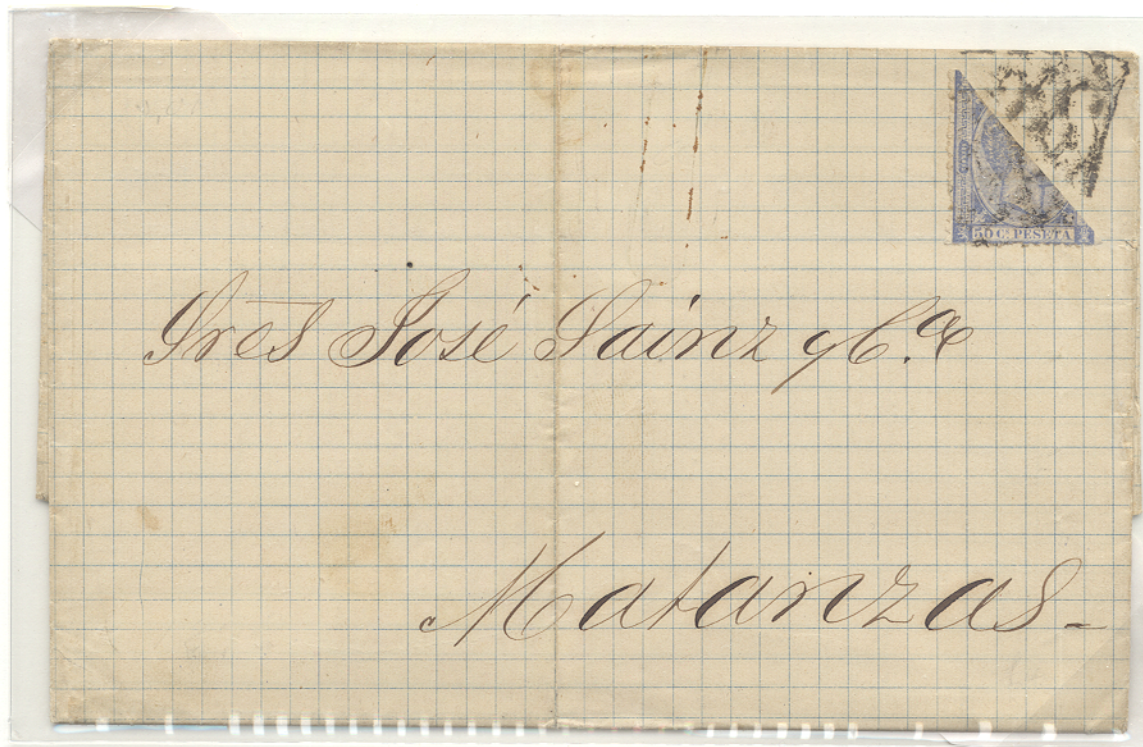 50 C. PESETA
Sres José Sainz y Ca
Matanzas-